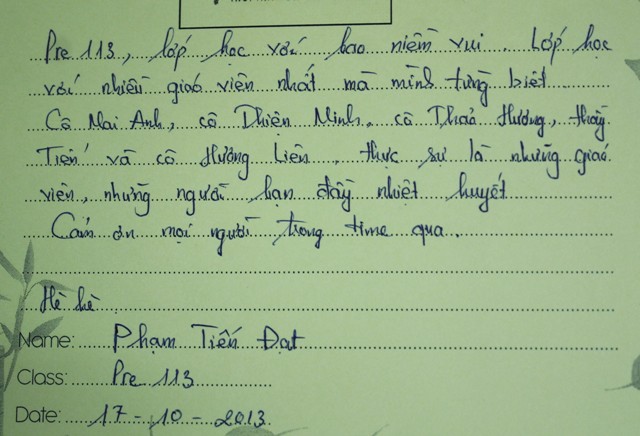 Pre 113, lớp học với bao niềm vui. Lớp học
với nhiều giáo viên nhất mà mình từng biết
Cô Mai Anh, cô Thiện Minh, cô Thảo Hương, thầy
Tiến và cô Hường Liên thực sự là những giáo
viên, những người bạn đầy nhiệt huyết
Cảm ơn mọi người trong time qua.
Hè hè
Name: Phạm Tiến Đạt
Class: Pre 113
Date: 17-10-2013